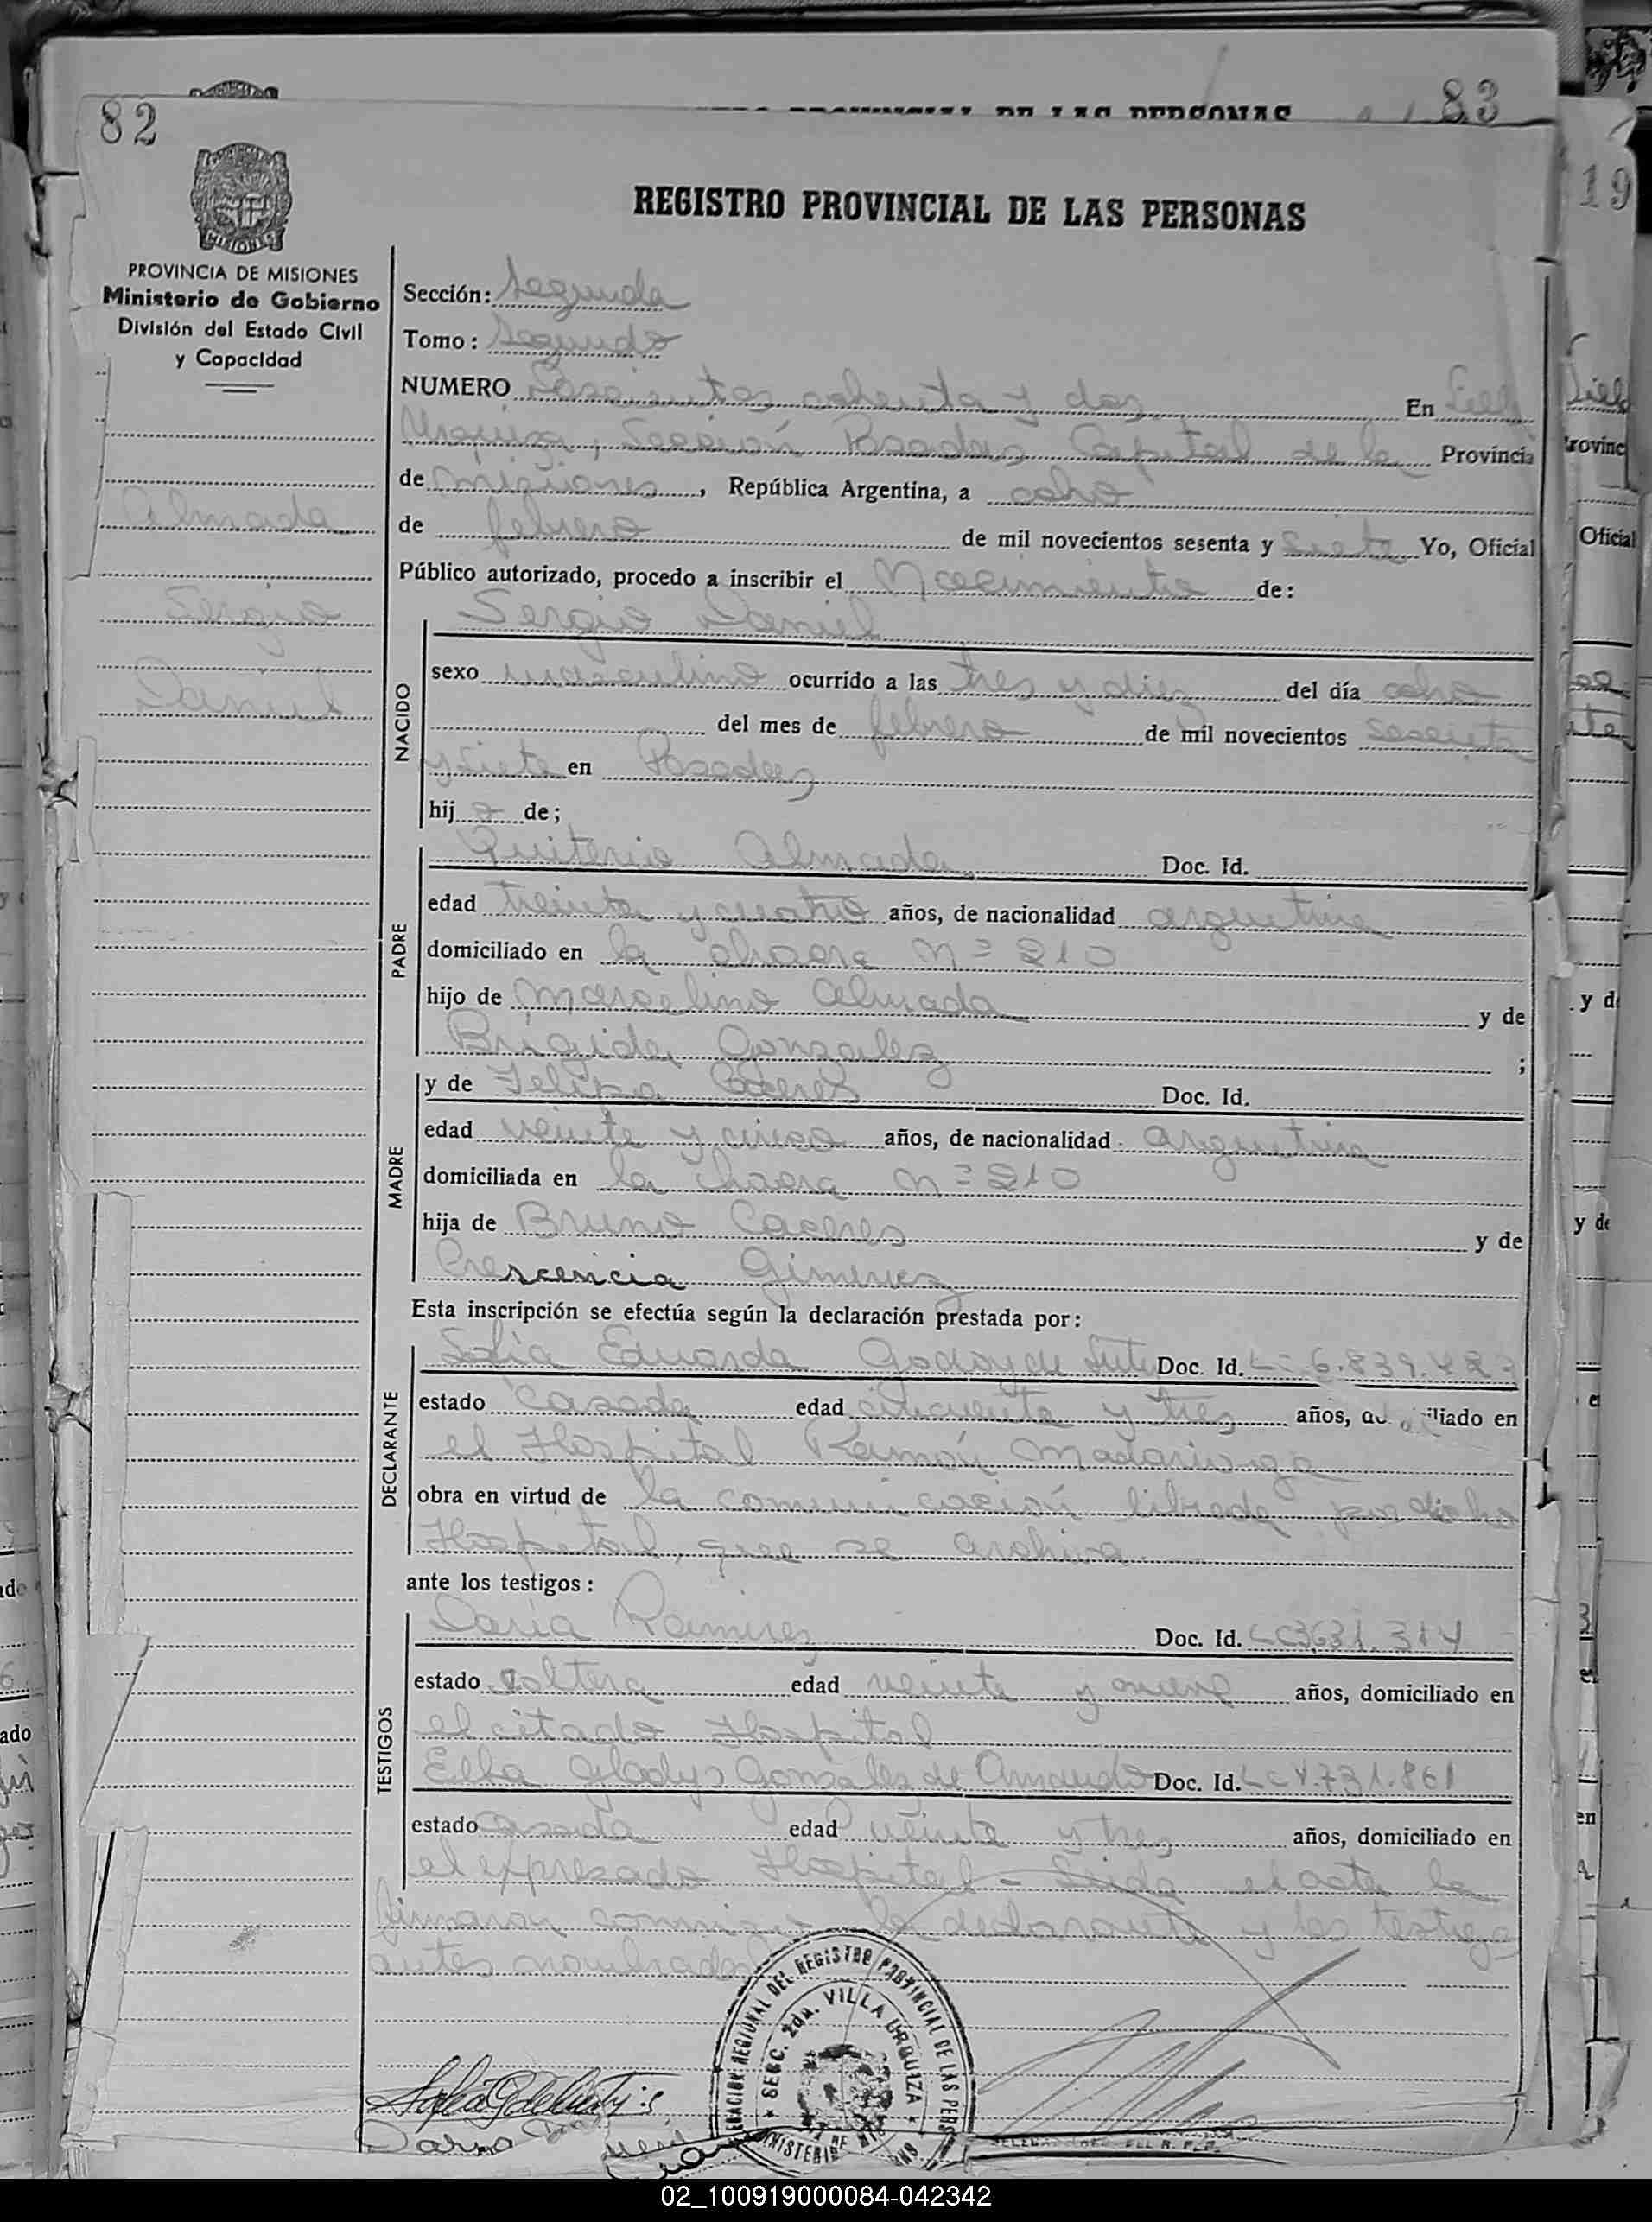 DE LAS PERSONAS
82
83
19
REGISTRO PROVINCIAL DE LAS PERSONAS
MISIONES
PROVINCIA DE MISIONES
Ministerio de Gobierno
División del Estado Civil
y Capacidad
Almada
Sergio
Daniel
Sección: Segunda
Tomo: Segundo
NUMERO ochenta y dos En Villa
Urquiza, Sección Posadas Capital de la Provincia
de Misiones, República Argentina, a ocho
de febrero de mil novecientos sesenta y siete Yo, Oficial
Público autorizado, procedo a inscribir el Nacimiento de:
NACIDO
Sergio Daniel
sexo masculino ocurrido a las tres y diez del día ocho
del mes de febrero de mil novecientos sesenta
y siete en Posadas
hij o de;
PADRE
Quiterio Almada Doc. Id.
edad treinta y cuatro años, de nacionalidad argentina
domiciliado en la chacra Nº 210
hijo de Marcelino Almada y de
Brigida Gonzalez ;
MADRE
y de Felipa Caceres Doc. Id.
edad veinte y cinco años, de nacionalidad argentina
domiciliada en la chacra Nº 210
hija de Bruno Caceres y de
Crescencia Gimenez
Esta inscripción se efectúa según la declaración prestada por:
DECLARANTE
Sofia Eduarda Godoy de Doc. Id. LC 6.839.423
estado casada edad cincuenta y tres años, domiciliado en
el Hospital Ramón Madariaga
obra en virtud de la comunicación librada por dicho
Hospital, que se archiva.
ante los testigos:
TESTIGOS
Daria Ramirez Doc. Id. LC 3631.314
estado soltera edad veinte y nueve años, domiciliado en
el citado Hospital
Elba Gladys Gonzalez de Doc. Id. LC 4.731.861
estado casada edad veinte y tres años, domiciliado en
el expresado Hospital - Leida el acta la
firmaron conmigo la declarante y los testigos
antes nombrados
REGIONAL DEL REGISTRO PROVINCIAL DE LAS PERS
SECC. 2da. VILLA URQUIZA
MINISTERIO
Daria
02_100919000084-042342